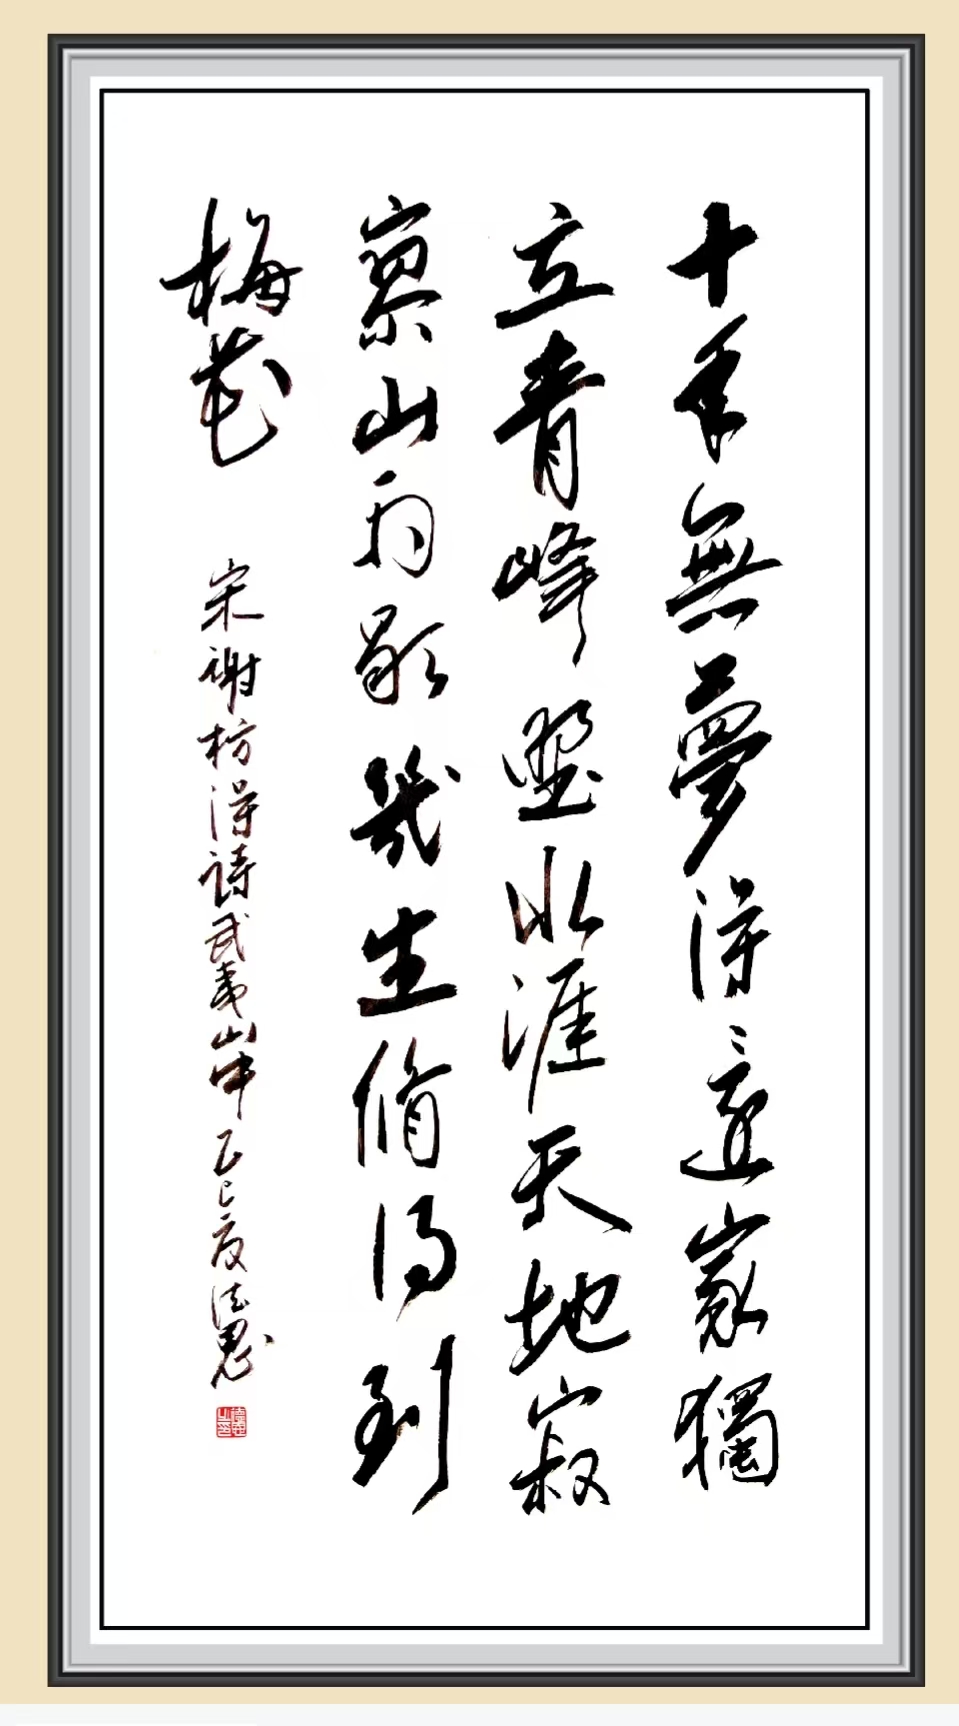 十年無夢得還家獨
立青峰野水涯天地寂
寥山雨歇幾生脩得到
梅花
宋謝枋得詩武夷山中 乙巳夏